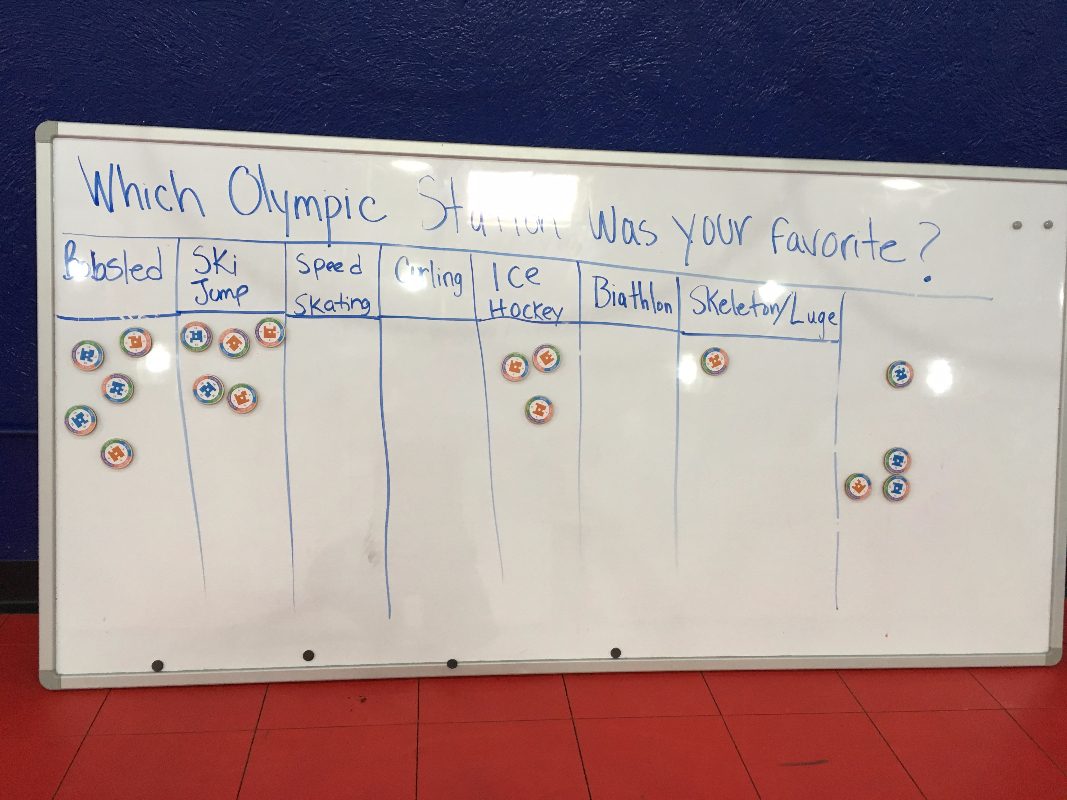 Which Olympic Station Was your favorite?
Bobsled
Ski
Jump
Speed
Skating
Curling
Ice
Hockey
Biathlon
Skeleton/Luge